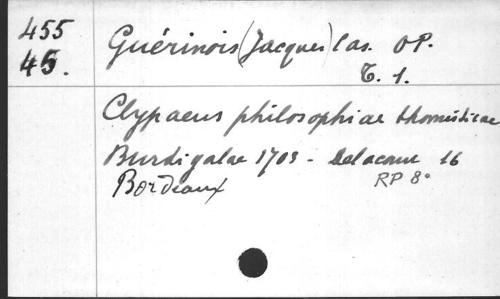 455
45.
Guérinois (Jacques) Cas. OP.
T. 1.
Clypaeus philosophiae thomisticae
Burdigalae 1703 - Delacourt 16
Bordeaux RP 8°